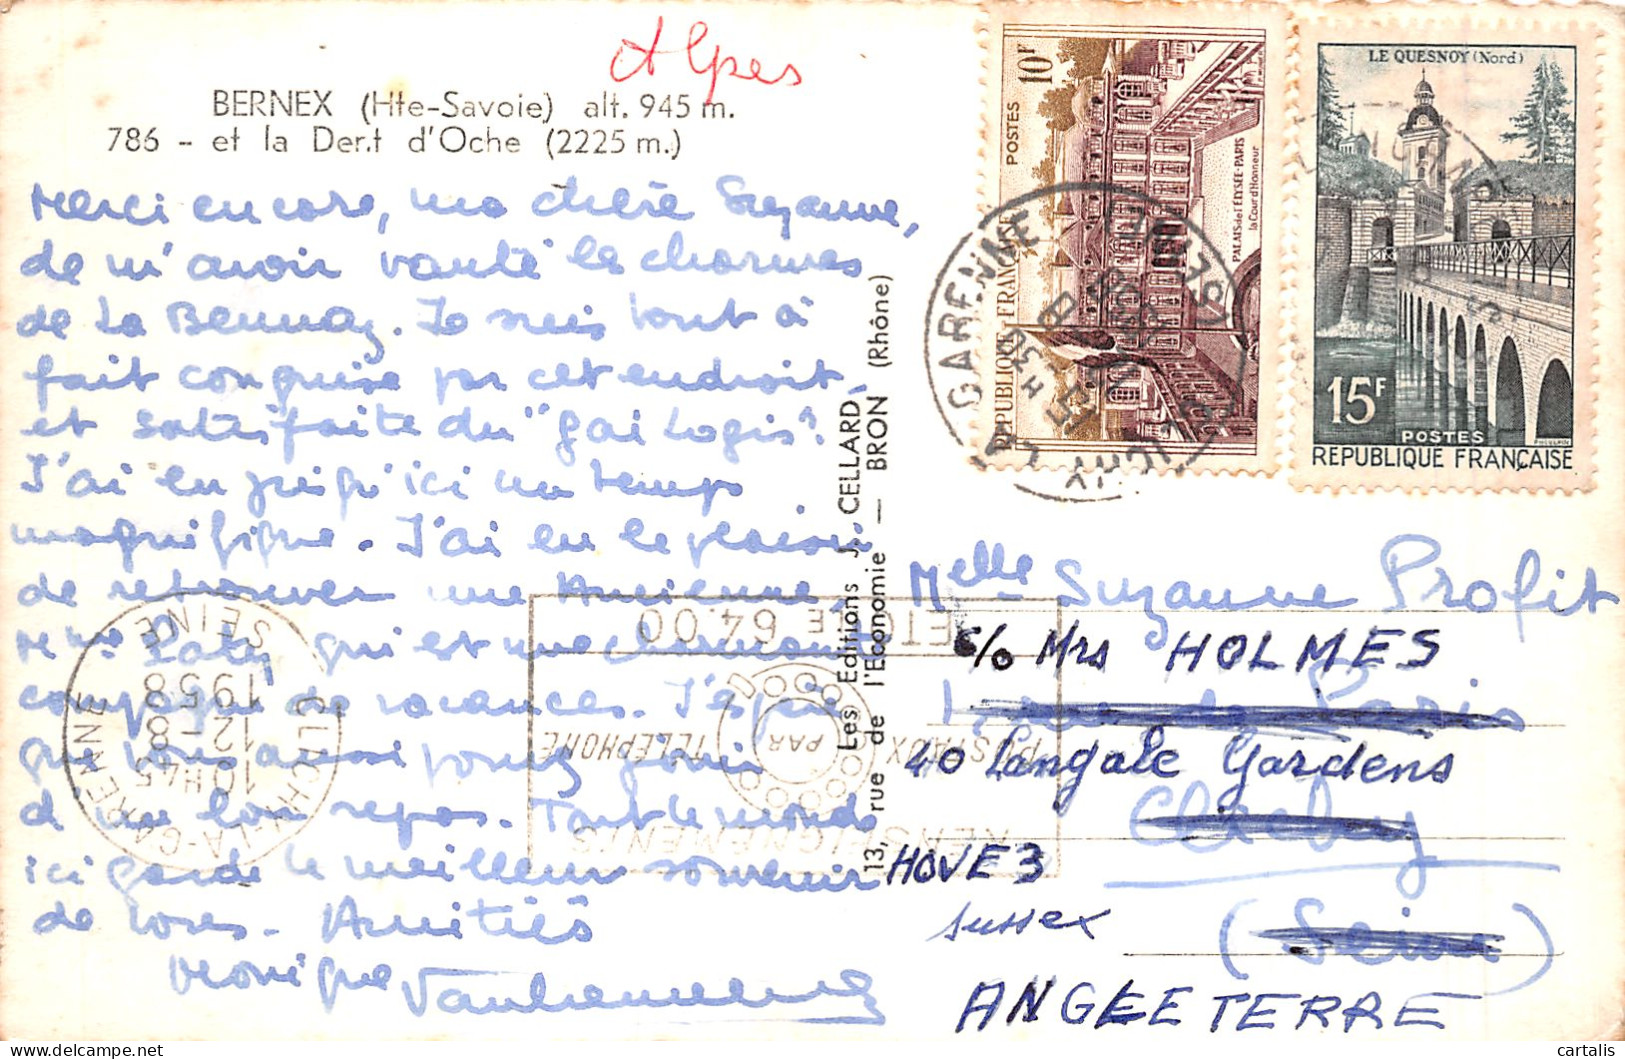 Alpes
BERNEX (Hte-Savoie) alt. 945 m.
786 - et la Dent d'Oche (2225 m.)
Merci encore, ma chère Suzanne,
de m'avoir vanté les charmes
de La Beunaz. Je suis tout à
fait conquise par cet endroit,
et satisfaite du "gai Logis".
J'ai eu jusqu'ici un temps
magnifique. J'ai eu le plaisir
de retrouver une Ancienne,
Mme qui est une charmante
compagne de vacances. J'espère
que vous aussi pouvez jouir
d'un bon repos. Tout le monde
ici garde le meilleur souvenir
de vous. Amitiés
Monique
Les Editions J. CELLARD
13, rue de l'Economie — BRON (Rhône)
POSTES 10F
PALAIS de l'ELYSÉE-PARIS
la Cour d'Honneur
REPUBLIQUE FRANÇAISE
LE QUESNOY (Nord)
15F
POSTES
REPUBLIQUE FRANÇAISE
CLICHY LA GARENNE
Melle Suzanne Profit
c/o Mrs HOLMES
40 Langdale Gardens
Clichy
HOVE 3
Sussex
(Seine)
ANGLETERRE
CLICHY-LA-GARENNE
10H45
12-8
1958
SEINE
ETOILE 64.00
PAR
TELEPHONE
POSTAUX
RENSEIGNEMENTS
cartalis